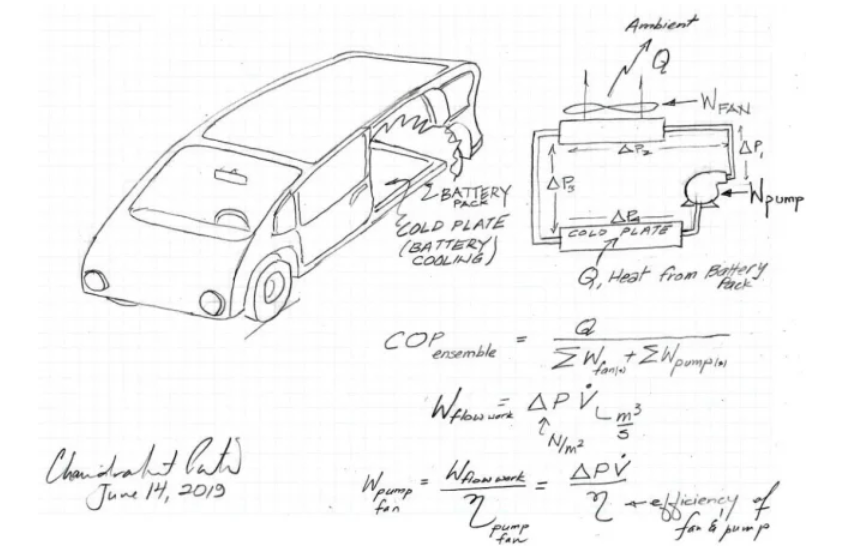 Ambient
Q
W FAN
ΔP₂
ΔP₁
ΔP₃
W pump
ΔP₄
COLD PLATE
Q, Heat from Battery
Pack
BATTERY
PACK
COLD PLATE
(BATTERY
COOLING)
COP ensemble = Q / ΣW fan(s) + ΣW pump(s)
W flow work = ΔP V̇
m³/s
N/m²
W pump fan = W flow work / η pump fan = ΔP V̇ / η
efficiency of
fan & pump
June 14, 2019